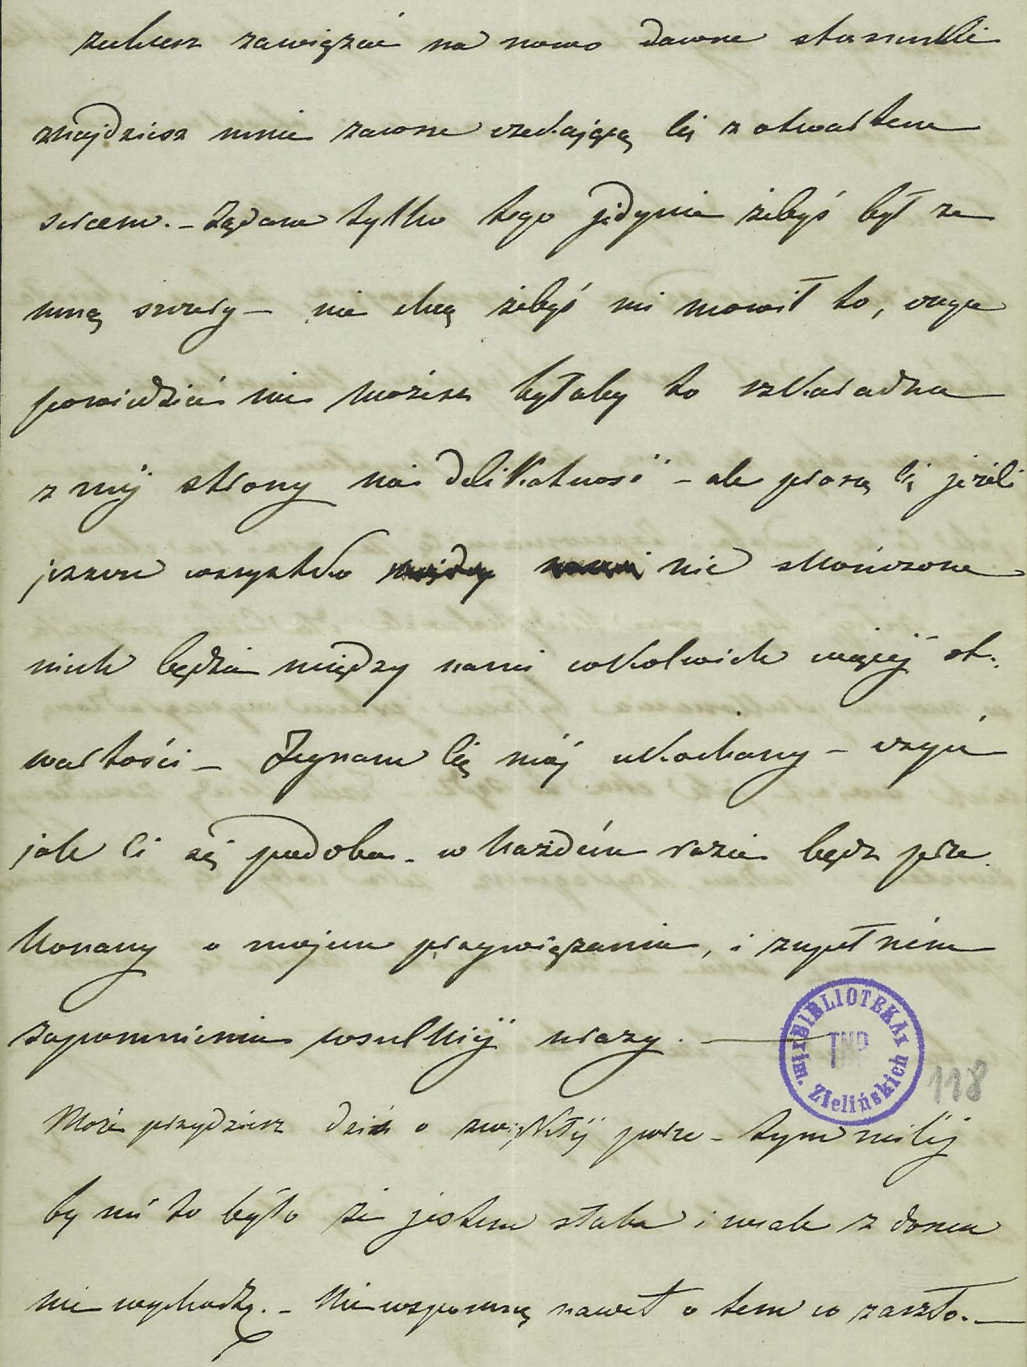 zechcesz zawiązać na nowo dawne stosunki
znajdziesz mnie zawsze czekającą Cię z otwartem
sercem. – Żądam tylko tego jedynie żebyś był ze
mną szczery – nie chcę żebyś mi mowił to, czego
powiedzieć nie możesz byłaby to szkaradna
z mej strony nie delikatność – ale proszę Cię jeżeli
jeszcze wszystko między nami nie skończone
niech będzie między nami cokolwiek więcéj ot-
wartości – Żegnam Cię mój ukochany – czyń
jak Ci się podoba – w każdém razie bądz prze
konany o mojem przywiązaniu, i zupełném
zapomnieniu wszelkiéj urazy. –
BIBLIOTEKA
im. Zielińskich
TNP
118
Może przydziesz dziś o zwykłéj porze – tym miléj
by mi to było że jestem słaba i wcale z domu
nie wychodzę. – Nie wspomnę nawet o tem co zaszło. –